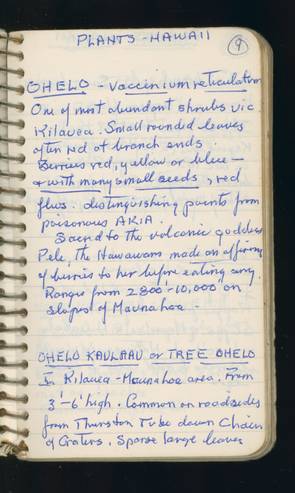 PLANTS - HAWAII
9
OHELO - Vaccinium reticulatum
One of most abundant shrubs vic.
Kilauea. Small rounded leaves
often red at branch ends.
Berries red, yellow or blue -
& with many small seeds, red
flws. distinguishing points from
poisonous AKIA.
Sacred to the volcanic goddess
Pele, the Hawaiians made an offering
of berries to her before eating any.
Ranges from 2800'-10,000' on
slopes of Maunaloa.
OHELO KAULAAU or TREE OHELO
In Kilauea - Maunaloa area. From
3'-6' high. Common on roadsides
from Thurston Tube down Chain
of Craters. Sparse large leaves